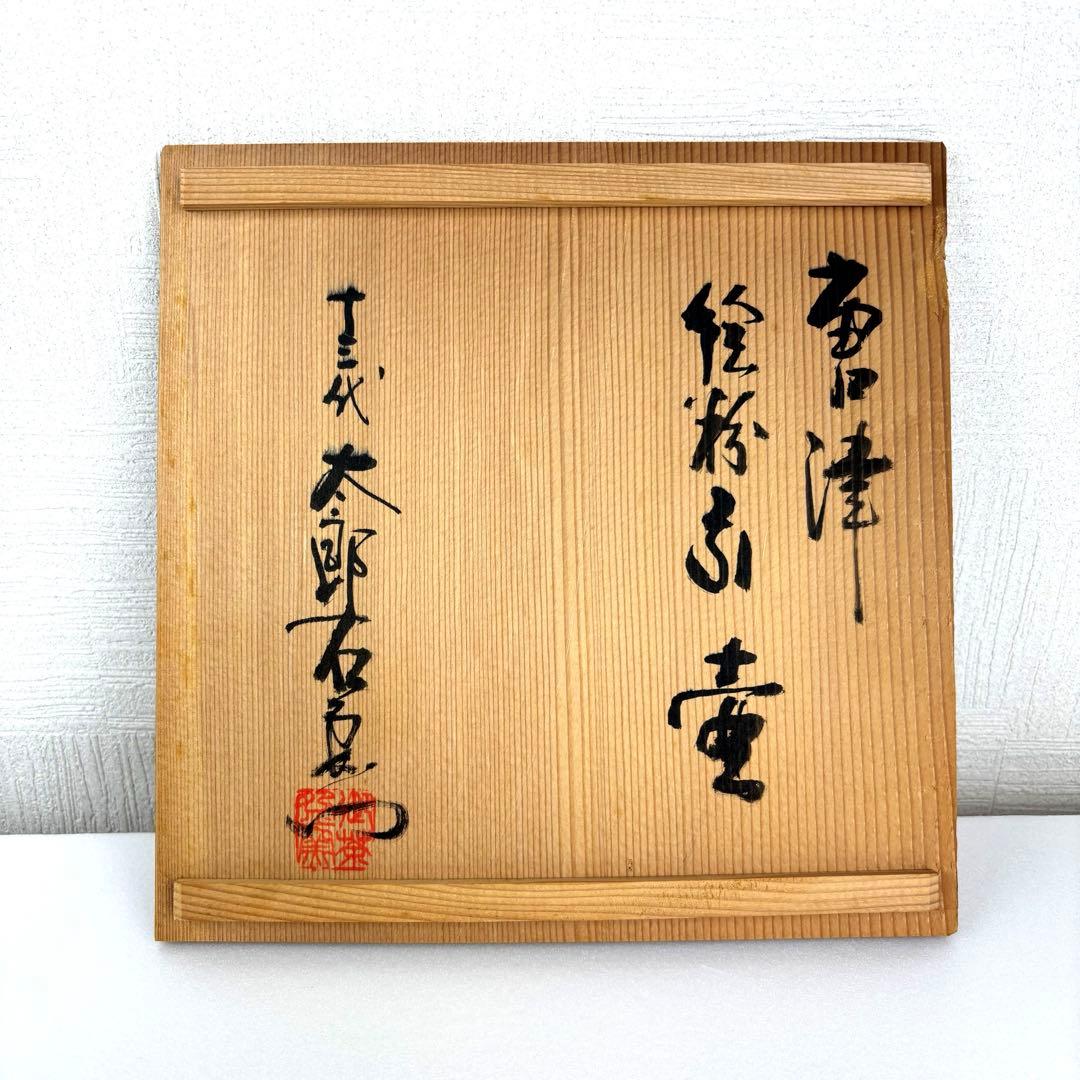 唐津
絵粉引壷
十三代 太郎右衛門